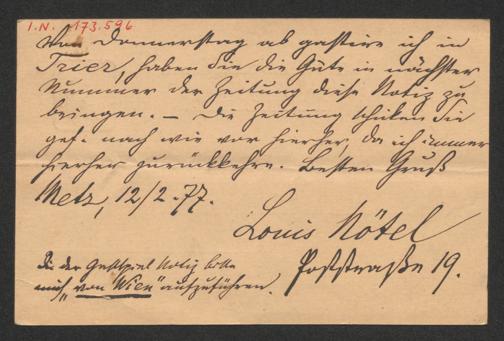 I.N. 173.596
Von Donnerstag ab gastire ich in
Trier, haben Sie die Güte in nächster
Nummer der Zeitung diese Notiz zu
bringen. – Die Zeitung schicken Sie
gef. nach wie vor hierher, da ich immer
hierher zurückkehre. Besten Gruß
Metz, 12/2.77.
Louis Nötel
Poststraße 19.
In der Gastspiel Notiz bitte
mich „von Wien" aufzuführen.